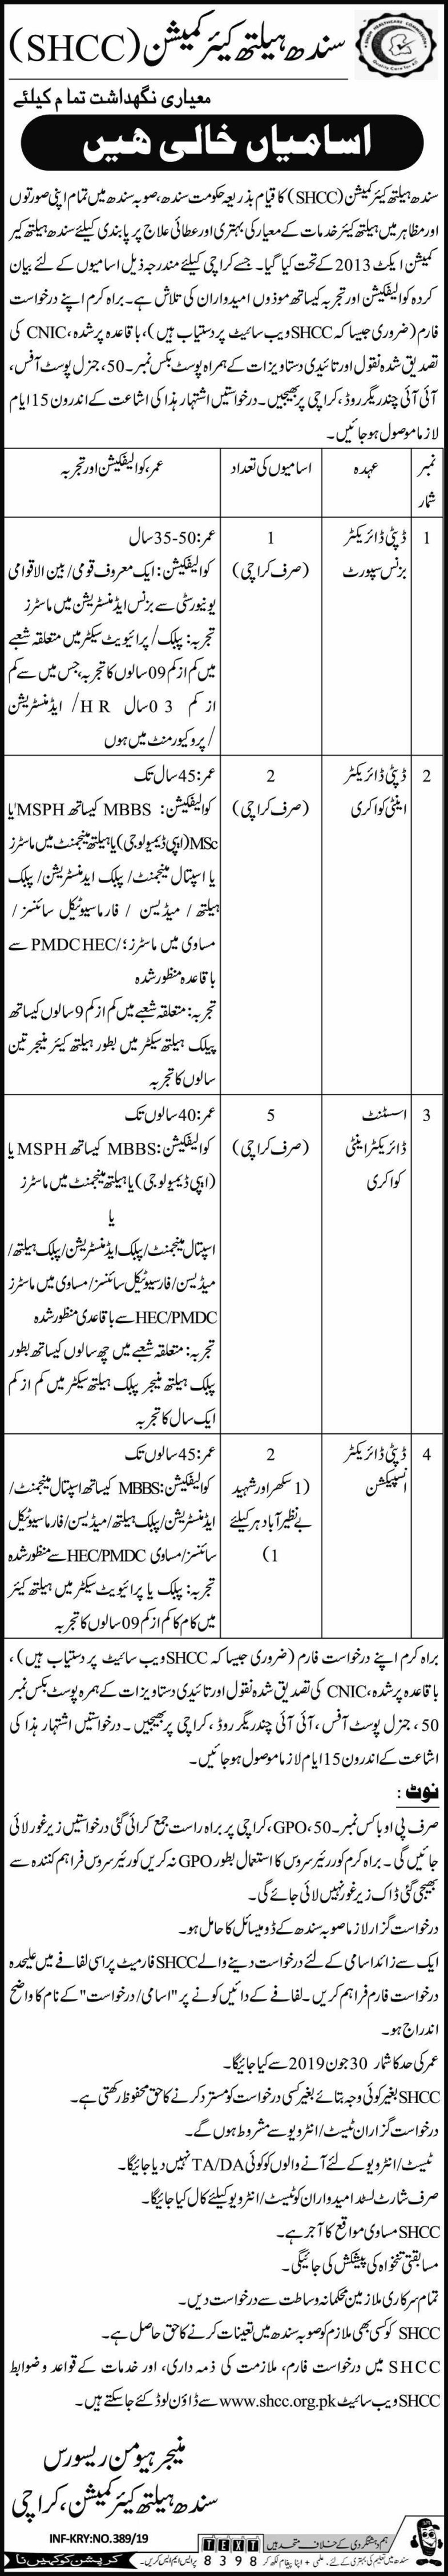 سندھ ہیلتھ کیئر کمیشن (SHCC)
معیاری نگہداشت تمام کیلئے
اسامیاں خالی ہیں
سندھ ہیلتھ کیئر کمیشن (SHCC) کا قیام بذریعہ حکومت سندھ، صوبہ سندھ میں تمام اپنی صورتوں
اور مظاہر میں ہیلتھ کیئر خدمات کے معیار کی بہتری اور عطائی علاج پر پابندی کیلئے سندھ ہیلتھ کیر
کمیشن ایکٹ 2013 کے تحت کیا گیا۔ جسے کراچی کیلئے مندرجہ ذیل اسامیوں کے لئے بیان
کردہ کوالیفکیشن اور تجربہ کیساتھ موذوں امیدواران کی تلاش ہے۔ براہ کرم اپنے درخواست
فارم (ضروری جیسا کہ SHCC ویب سائیٹ پر دستیاب ہیں)، باقاعدہ پرشدہ، CNIC کی
تصدیق شدہ نقول اور تائیدی دستاویزات کے ہمراہ پوسٹ بکس نمبر۔50، جنرل پوسٹ آفس،
آئی آئی چندریگر روڈ، کراچی پر بھیجیں۔ درخواستیں اشتہار ہذا کی اشاعت کے اندرون 15 ایام
لازما موصول ہو جائیں۔
نمبر شمار | عہدہ | اسامیوں کی تعداد | عمر، کوالیفکیشن اور تجربہ
1 | ڈپٹی ڈائریکٹر بزنس سپورٹ | 1 (صرف کراچی)
عمر: 50-35 سال
کوالیفکیشن: ایک معروف قومی/ بین الاقوامی
یونیورسٹی سے بزنس ایڈمنسٹریشن میں ماسٹرز
تجربہ: پبلک/ پرائیویٹ سیکٹر میں متعلقہ شعبے
میں کم از کم 09 سالوں کا تجربہ، جس میں سے کم
از کم 03 سال HR/ ایڈمنسٹریشن
/ پروکیورمنٹ میں ہوں
2 | ڈپٹی ڈائریکٹر اینٹی کواکری | 2 (صرف کراچی)
عمر: 45 سال تک
کوالیفکیشن: MBBS کیساتھ MSPH یا'
MSc (ایپی ڈیمیولوجی) یا ہیلتھ مینجمنٹ میں ماسٹرز
یا اسپتال مینجمنٹ/ پبلک ایڈمنسٹریشن/ پبلک
ہیلتھ / میڈیسن / فارماسیوٹیکل سائنسز /
مساوی میں ماسٹرز؛ /PMDCHEC سے
باقاعدہ منظور شدہ
تجربہ: متعلقہ شعبے میں کم از کم 9 سالوں کیساتھ
پبلک ہیلتھ سیکٹر میں بطور ہیلتھ کیئر منیجر تین
سالوں کا تجربہ
3 | اسسٹنٹ ڈائریکٹر اینٹی کواکری | 5 (صرف کراچی)
عمر: 40 سالوں تک
کوالیفکیشن: MBBS کیساتھ MSPH یا
(ایپی ڈیمیولوجی) یا ہیلتھ مینجمنٹ میں ماسٹرز
یا
اسپتال مینجمنٹ/ پبلک ایڈمنسٹریشن/ پبلک ہیلتھ/
میڈیسن/ فارسیوٹیکل سائنسز/ مساوی میں ماسٹرز
HEC/PMDC سے باقاعدی منظور شدہ
تجربہ: متعلقہ شعبے میں چھ سالوں کیساتھ بطور
پبلک ہیلتھ منیجر پبلک ہیلتھ سیکٹر میں کم از کم
ایک سال کا تجربہ
4 | ڈپٹی ڈائریکٹر انسپیکشن | 2 (1 سکھر اور شہید بے نظیر آباد ہر کیلئے 1)
عمر: 45 سالوں تک
کوالیفکیشن: MBBS کیساتھ اسپتال مینجمنٹ/
ایڈمنسٹریشن/ پبلک ہیلتھ/ میڈیسن/ فارماسیوٹیکل
سائنسز/ مساوی HEC/PMDC سے منظور شدہ
تجربہ: پبلک یا پرائیویٹ سیکٹر میں ہیلتھ کیئر
میں کام کا کم از کم 09 سالوں کا تجربہ
براہ کرم اپنے درخواست فارم (ضروری جیسا کہ SHCC ویب سائیٹ پر دستیاب ہیں)،
باقاعدہ پرشدہ، CNIC کی تصدیق شدہ نقول اور تائیدی دستاویزات کے ہمرہ پوسٹ بکس نمبر
50، جنرل پوسٹ آفس، آئی آئی چندریگر روڈ، کراچی پر بھیجیں۔ درخواستیں اشتہار ہذا کی
اشاعت کے اندرون 15 ایام لازما موصول ہو جائیں۔
نوٹ:
صرف پی او باکس نمبر۔50، GPO، کراچی پر براہ راست جمع کرائی گئی درخواستیں زیر غور لائی
جائیں گی۔ براہ کرم کورریئر سروس کا استعمال بطور GPO نہ کریں کورئیر سروس فراہم کنندہ سے
بھیجی گئی ڈاک زیر غور نہیں لائی جائے گی۔
درخواست گزار لازما صوبہ سندھ کے ڈومیسائل کا حامل ہو۔
ایک سے زائد اسامی کے لئے درخواست دینے والے SHCC فارمیٹ پر اسی لفافے میں علیحدہ
درخواست فارم فراہم کریں۔ لفافے کے دائیں کونے پر "اسامی/ درخواست" کے نام کا واضح
اندراج ہو۔
عمر کی حد کا شمار 30 جون 2019 سے کیا جائیگا۔
SHCC بغیر کوئی وجہ بتائے بغیر کسی درخواست کو مسترد کرنے کا حق محفوظ رکھتی ہے۔
درخواست گزاران ٹیسٹ/ انٹرویو سے مشروط ہوں گے۔
ٹیسٹ/ انٹرویو کے لئے آنے والوں کو کوئی TA/DA نہیں دیا جائیگا۔
صرف شارٹ لسٹد امیدواران کو ٹیسٹ/ انٹرویو کیلئے کال کیا جائیگا۔
SHCC مساوی مواقع کا آجر ہے۔
مسابقتی تنخواہ کی پیشکش کی جائیگی۔
تمام سرکاری ملازمین محکمانہ وساطت سے درخواست دیں۔
SHCC کو کسی بھی ملازم کو صوبہ سندھ میں تعینات کرنے کا حق حاصل ہے۔
SHCC میں درخواست فارم، ملازمت کی ذمہ داری، اور خدمات کے قواعد و ضوابط
SHCC ویب سائیٹ www.shcc.org.pk سے ڈاؤن لوڈ کئے جا سکتے ہیں۔
منیجر ہیومن ریسورس
سندھ ہیلتھ کیئر کمیشن، کراچی
INF-KRY:NO.389/19
ہم دہشتگردی کے خلاف متحد ہیں TEXT
سندھ میں تعلیم کی بہتری کے لئے، + اپنا پیغام لکھ کر 8398 پر ایس ایم ایس کریں۔
کرپشن کو کہیں نا